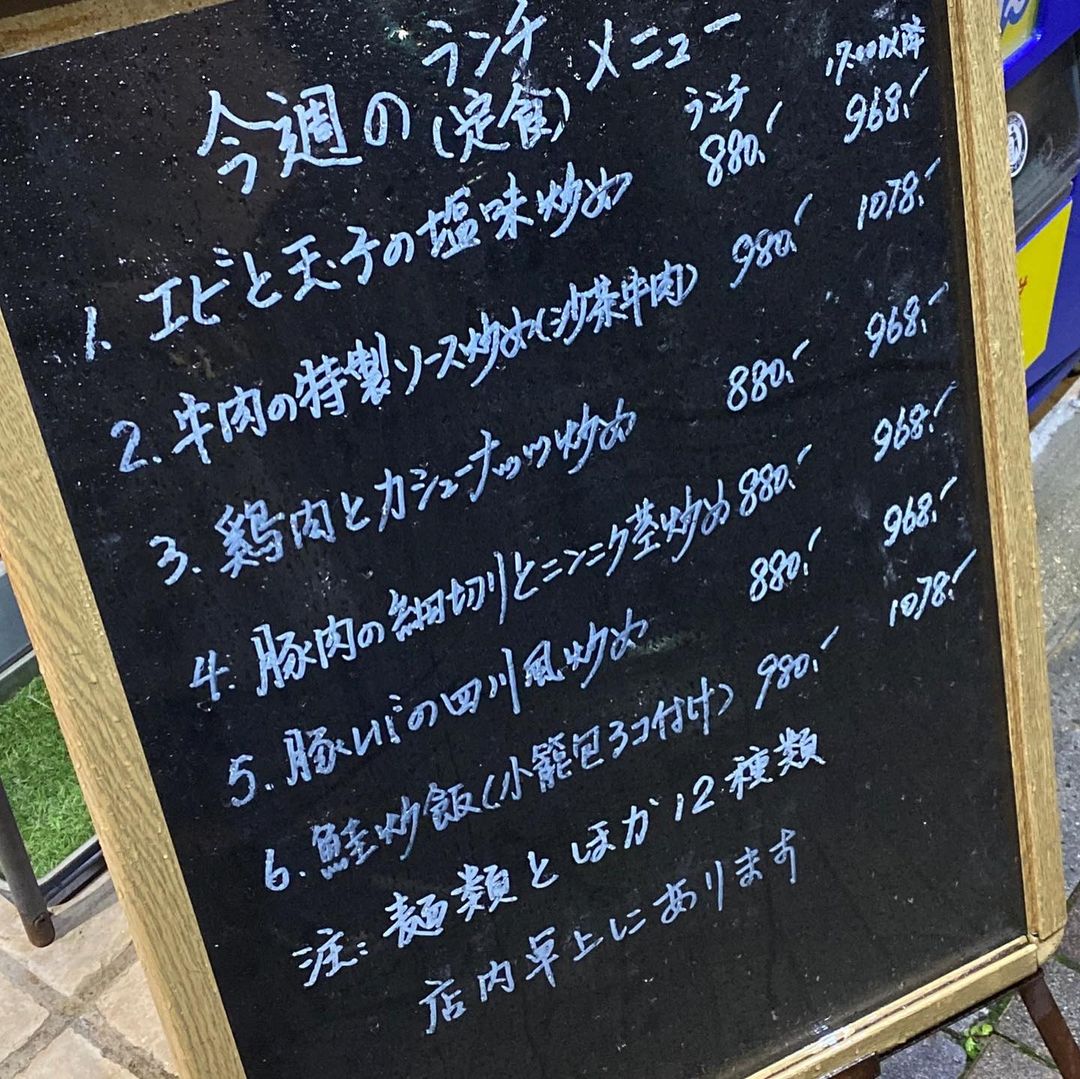 今週のランチ(定食)メニュー
ランチ 17:00以降
1. エビと玉子の塩味炒め 880.- 968.-
2. 牛肉の特製ソース炒め(沙茶牛肉) 980.- 1078.-
3. 鶏肉とカシューナッツ炒め 880.- 968.-
4. 豚肉の細切りとニンニク茎炒め 880.- 968.-
5. 豚レバの四川風炒め 880.- 968.-
6. 鮭炒飯(小籠包3コ付け) 980.- 1078.-
注: 麺類とほか12種類
店内卓上にあります